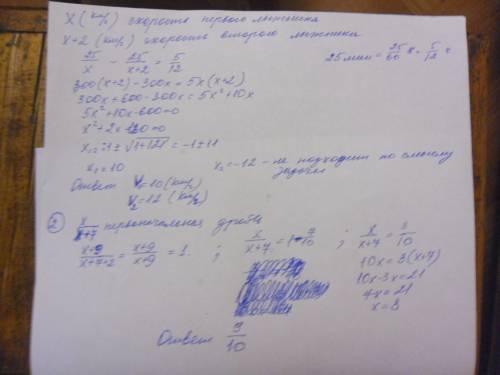 x (км/ч) скорость первого лыжника
x+2 (км/ч) скорость второго лыжника
25/x − 25/x+2 = 5/12
25 мин = 25/60 ч = 5/12 ч
300(x+2) − 300x = 5x(x+2)
300x + 600 − 300x = 5x² + 10x
5x² + 10x − 600 = 0
x² + 2x − 120 = 0
x₁,₂ = −1 ± √1+121 = −1 ± 11
x₁ = 10 x₂ = −12 − не подходит по смыслу задачи
Ответ V₁ = 10 (км/ч)
V₂ = 12 (км/ч)
② x/x+7 первоначальная дробь
x+9/x+7+2 = x+9/x+9 = 1. ; x/x+7 = 1 − 7/10 ; x/x+7 = 3/10
10x = 3(x+7)
10x−3x = 21
4x = 21
x = 3
Ответ 9/10